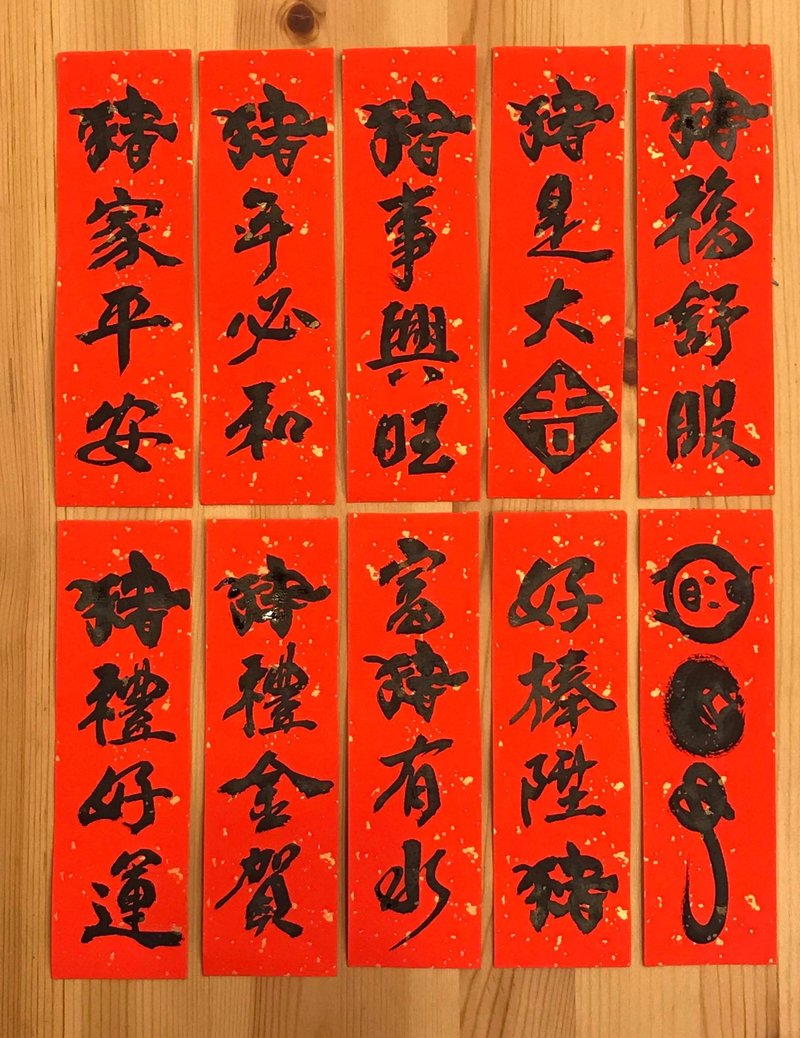 豬家平安
豬年必和
豬事興旺
豬是大吉
豬福舒服
豬禮好運
豬禮金賀
富豬有水
好棒陞豬